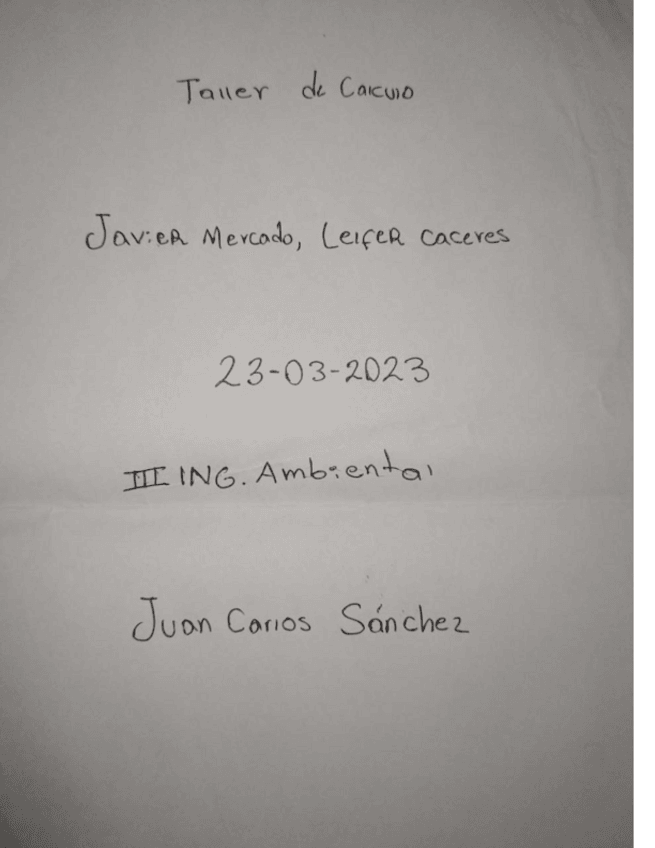 Taller de Calculo
Javier Mercado, Leifer Caceres
23-03-2023
III ING. Ambiental
Juan Carlos Sánchez